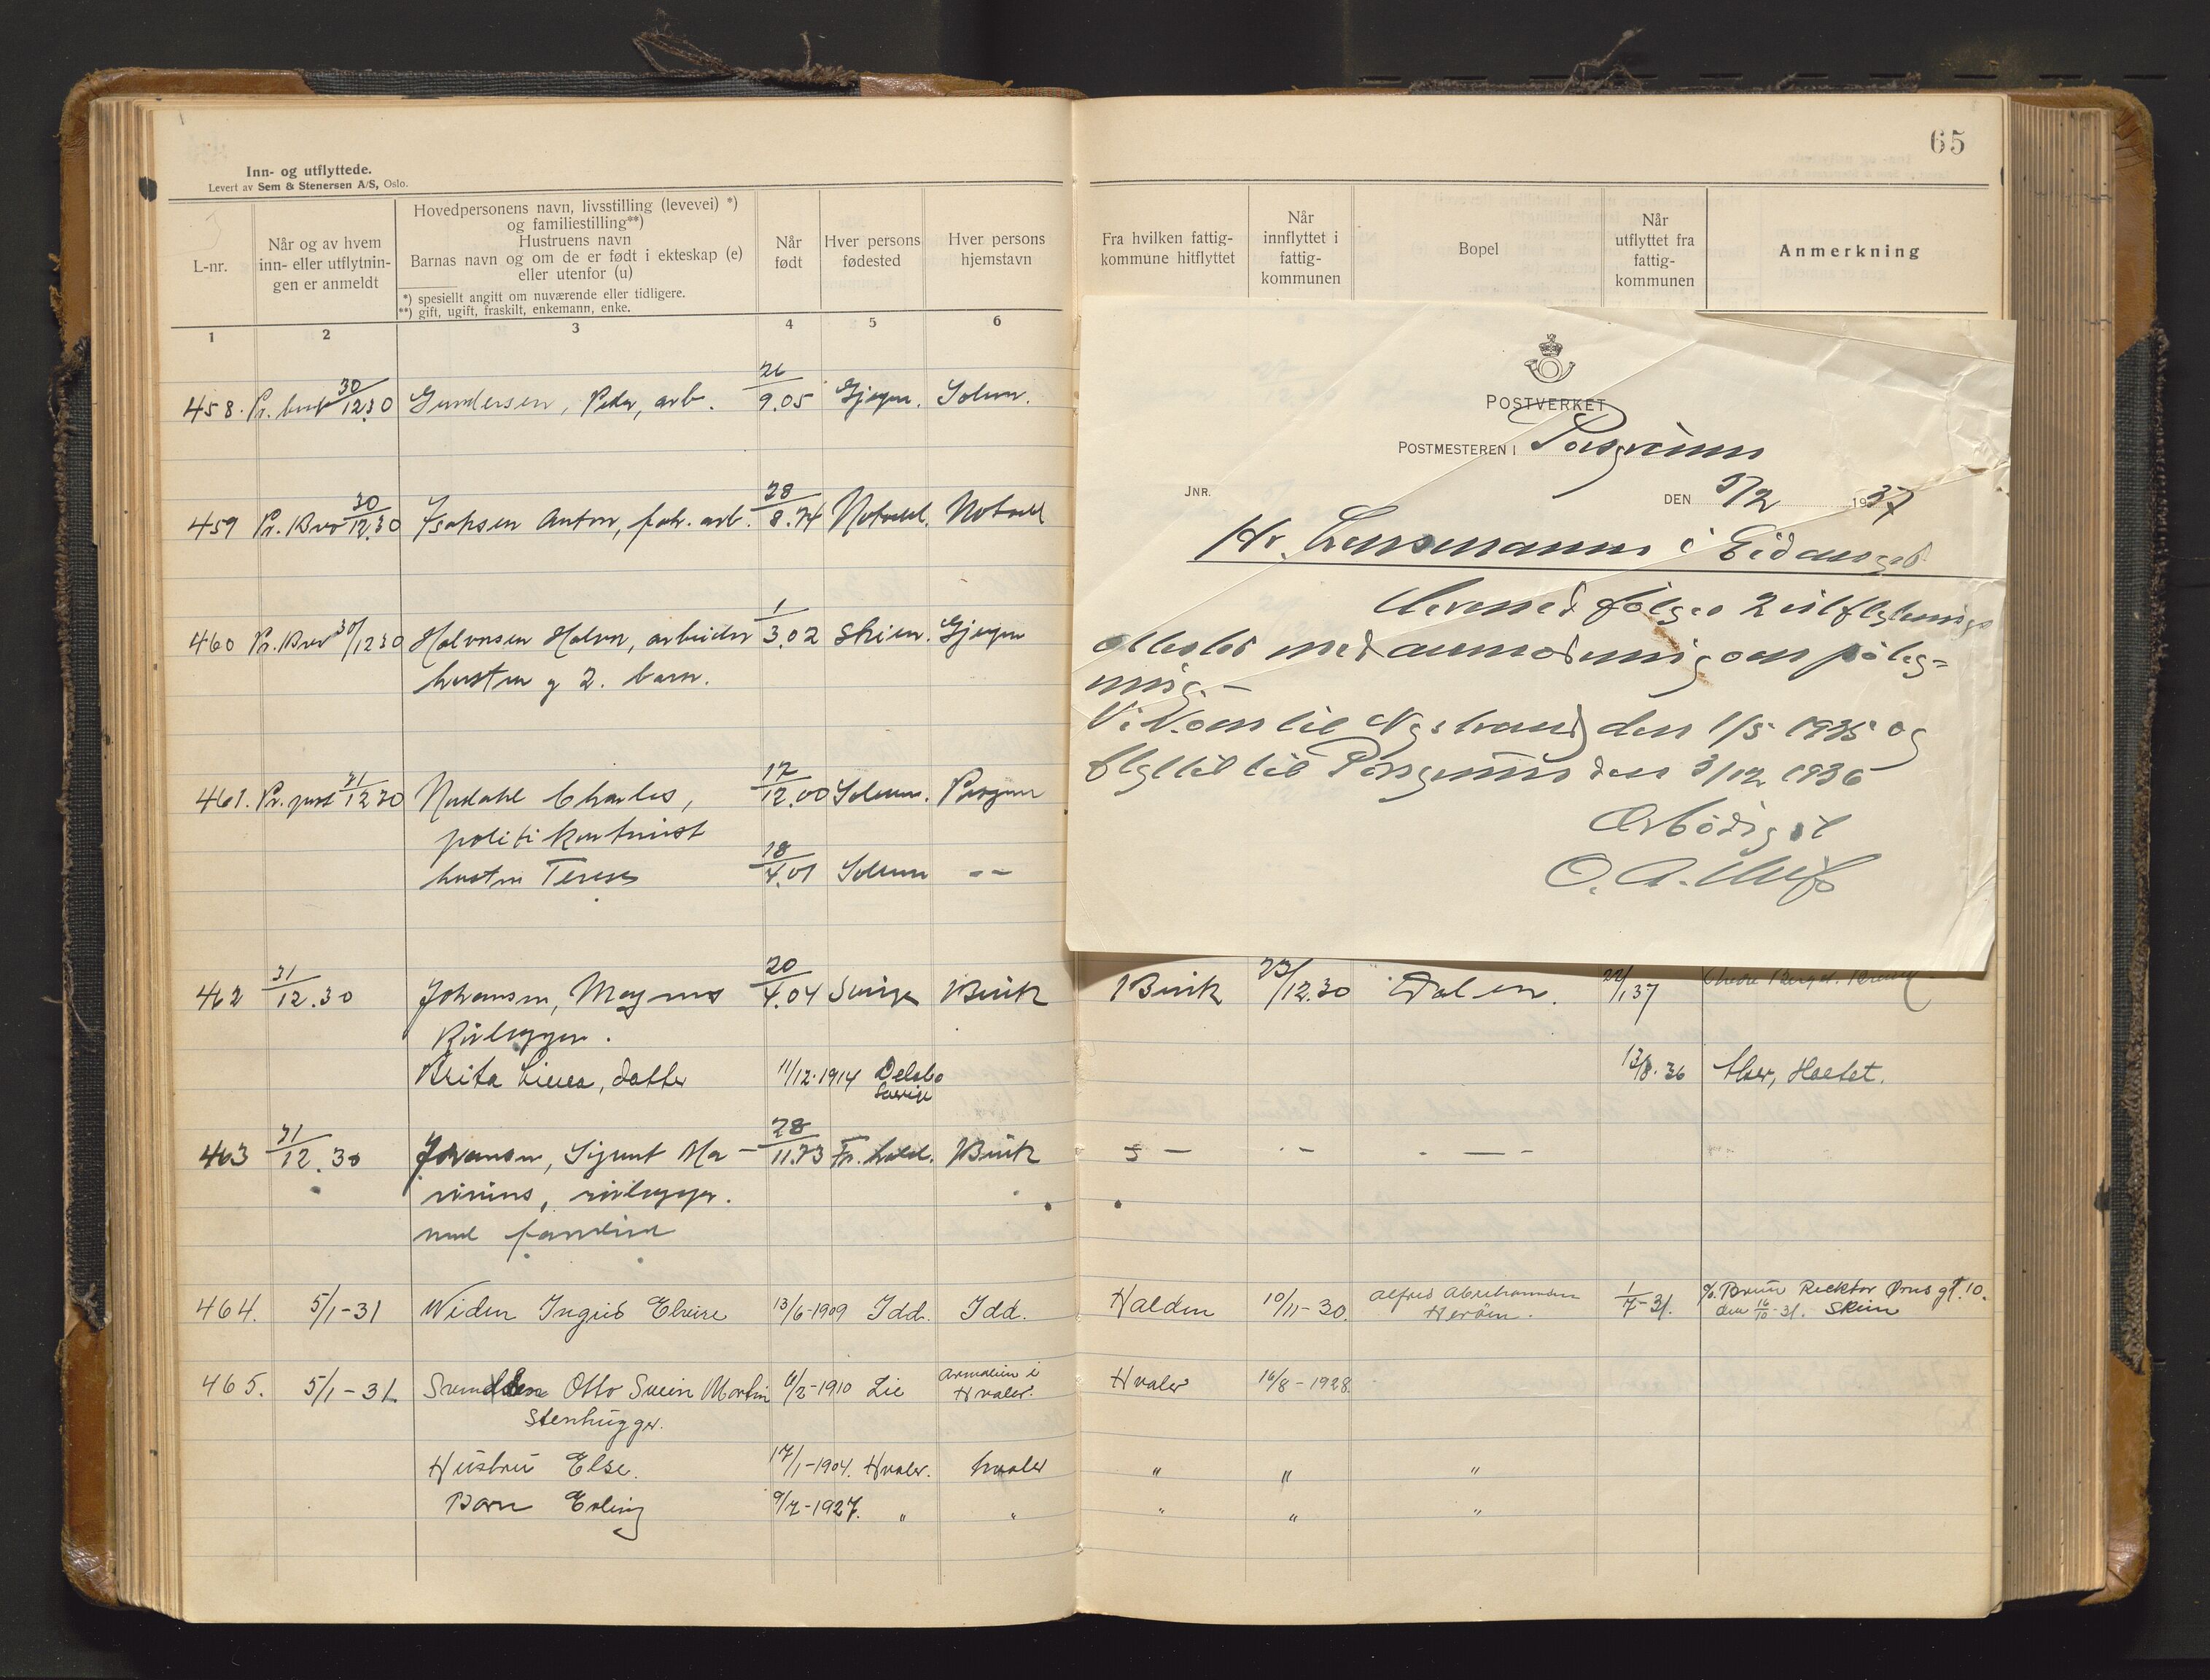 65
Inn- og utflyttede.
Levert av Sem & Stenersen A/S, Oslo.
L-nr.
Når og av hvem
inn- eller utflytnin-
gen er anmeldt
Hovedpersonens navn, livsstilling (levevei) *)
og familiestilling**)
Hustruens navn
Barnas navn og om de er født i ekteskap (e)
eller utenfor (u)
*) spesiellt angitt om nuværende eller tidligere.
**) gift, ugift, fraskilt, enkemann, enke.
Når
født
Hver persons
fødested
Hver persons
hjemstavn
1 2 3 4 5 6
458. Pr. brev 30/12.30 Gundersen, Peder, arb. 26/9.05 Gjerpen. Solum.
459 Pr. Brev 30/12.30 Isaksen Anton, fabr. arb. 28/8.74 Notodd. Notodd
460 Pr. Brev 30/12 30 Halvorsen Halvor, arbeider 1/3.02 Skien. Gjerpen
hustru og 2. barn.
461. Pr. post 31/12 30 Nordahl Charles, 17/12.00 Solum. Porsgrunn
politikonstruist
hustru Terese 18/4.01 Solum - -
462 31/12.30 Johansen, Magnus 20/4.04 Sverige Bærik
Rørlegger.
Brita Linea, datter 11/12.1914 Delsbo
Sverige
463 31/12.30 Johansen, Sigurt Ma- 28/11.73 Fr.hald. Bærik
rinius, rørlegger.
med familie
464. 5/1-31 Widen Ingrid Elvire 13/6-1909 Idd. Idd.
465. 5/1-31 Otto Svein Martin 6/2-1910 Lie
Hvaler.
Stenhugger.
Hustru Else. 17/1-1904. Hvaler. hvaler
Barn Erling 9/7-1927. " "
Fra hvilken fattig-
kommune hitflyttet
Når
innflyttet i
fattig-
kommunen
Bopel
Når
utflyttet fra
fattig-
kommunen
Anmerkning
POSTVERKET
POSTMESTEREN I Porsgrunn
JNR.
DEN 5/2 1937
Hr. Lensmannen i Eidanger
Hermed følger 2 utflytnings
attester med anmodning om påteg-
ning.-
Vi kom til Nystrand den 1/5 1935 og
flyttet til Porsgrunn den 3/12 1936
Ærbødigst
O. A.
23/12.30 Dalen. 22/1 37
13/8.36 Aker, Hasket.
- - - -
Halden 10/11-30. Alfred Abrahamsen 1/7-31. c/o. Bruun Recktor Ørns gt. 10.
Herøen. den 16/10-31. Skien
Hvaler 16/8-1928.
" " "
" " "